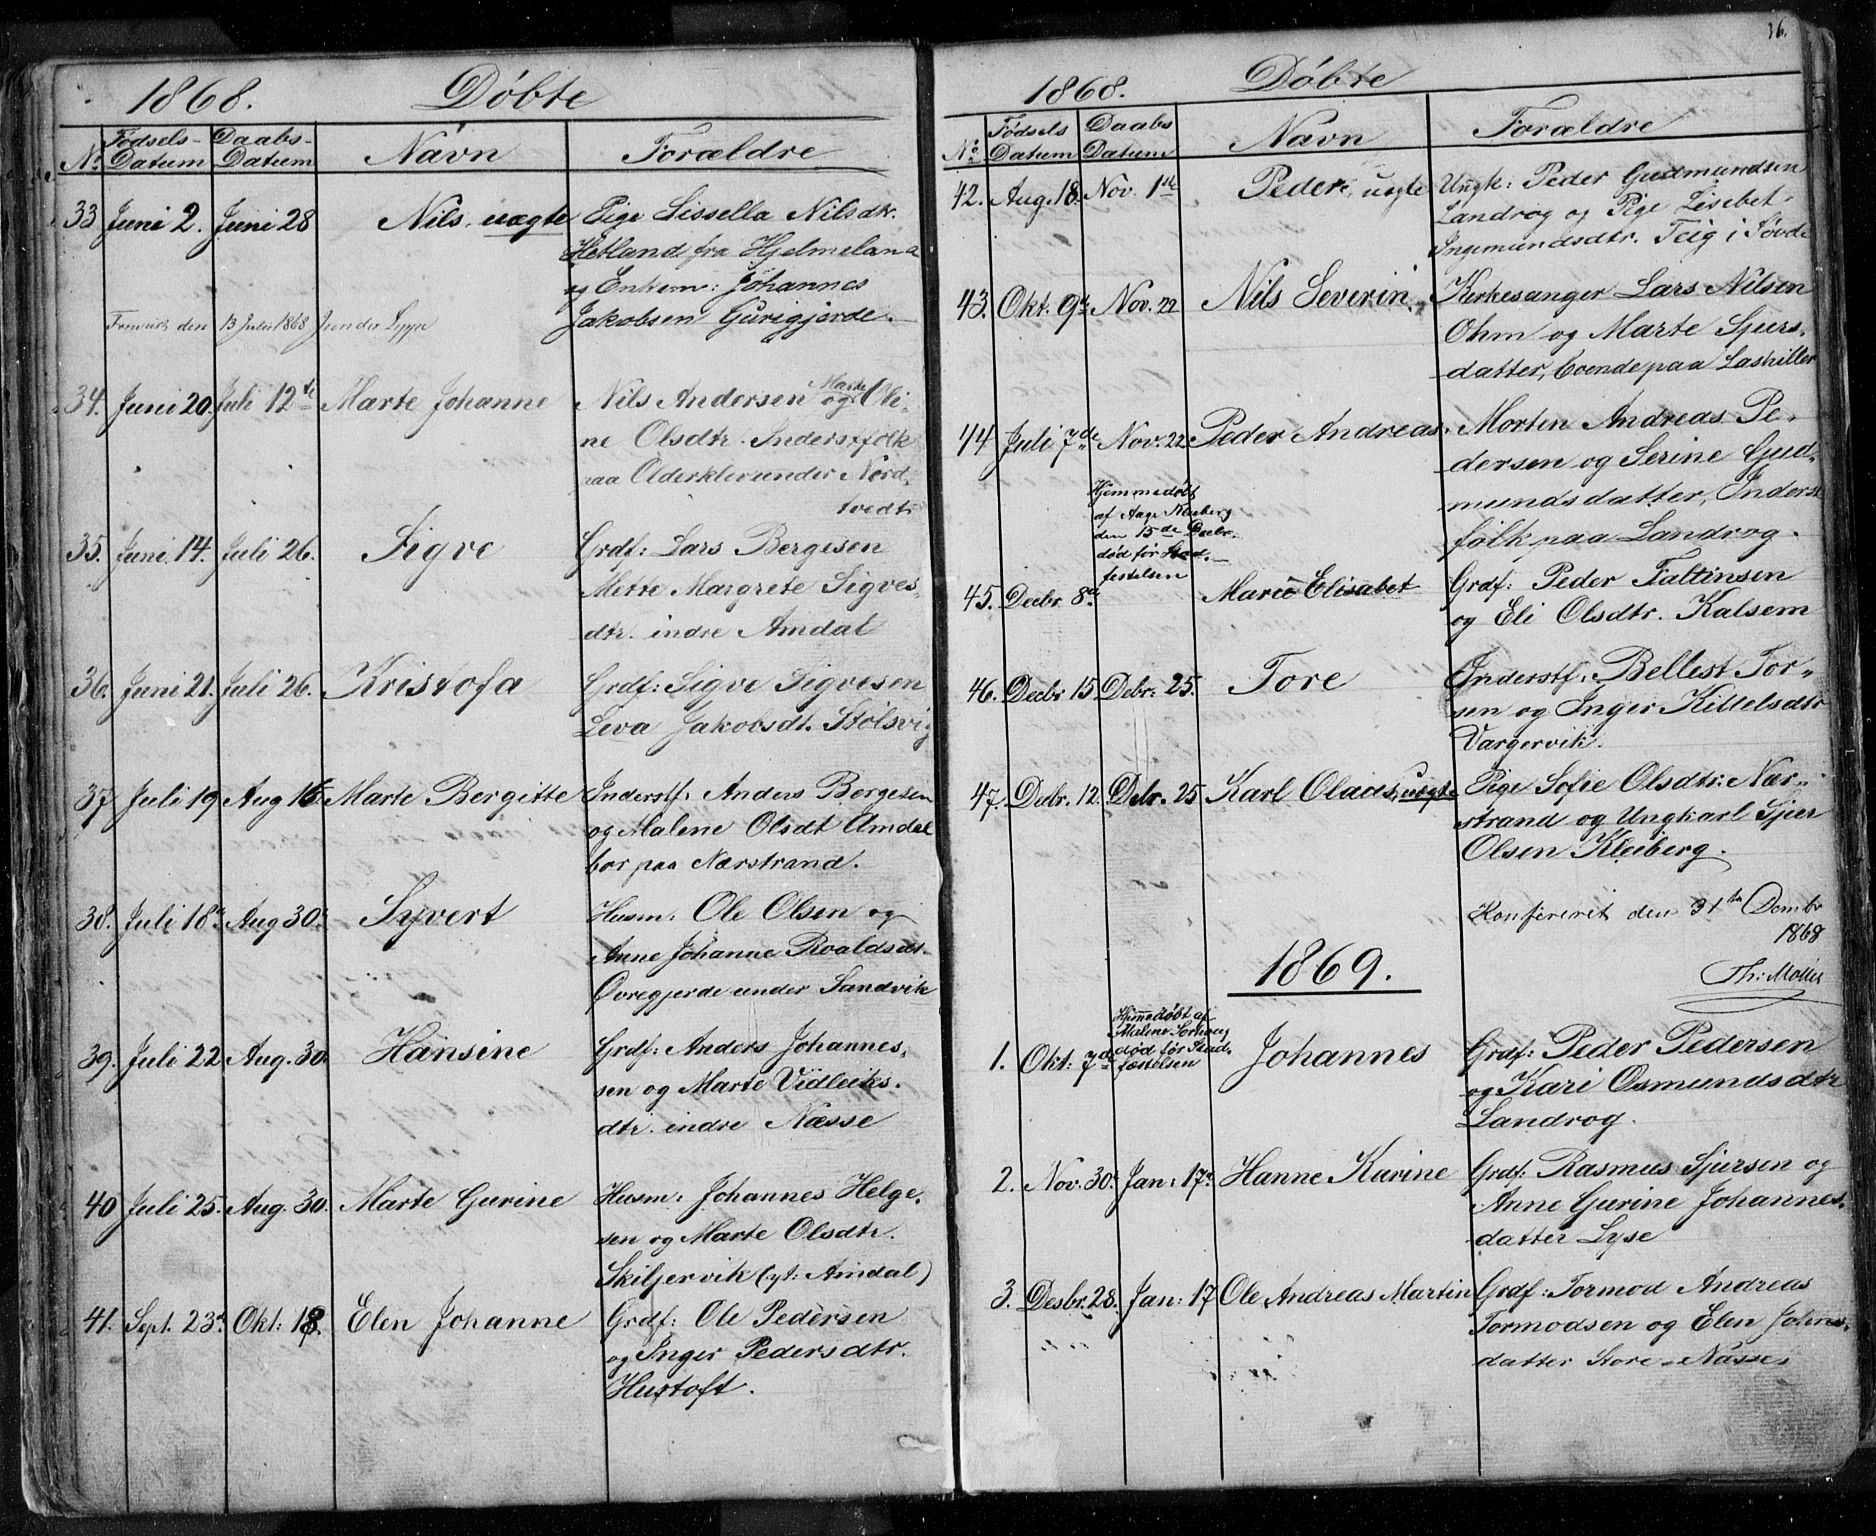 1868. Døbte
No. Fødsels-Datum Daabs-Datum Navn Forældre
33 Juni 2. Juni 28 Nils, uægte Pige Sissella Nilsdtr.
Hetland fra Hjelmeland
og Enkem: Johannes
Jakobsen Gurigjerde.
den 13 Juli 1868
34. Juni 20. Juli 12te Marte Johanne Nils Andersen og Marte Oli-
ne Olsdtr. Inderstfolk
paa Olderklev under Nord-
tvedt.
35. Juni 14. Juli 26. Sigve Grdf: Lars Bergesen
Mette Margrete Sigves
dtr. indre Amdal
36. Juni 21. Juli 26. Kristofa Grdf: Sigve Sigvesen
Leva Jakobsdt. Stølsvig
37 Juli 19 Aug 16. Marte Bergitte Inderstf. Anders Bergesen
og Malene Olsdt Amdal
bor paa Nærstrand.
38. Juli 18de Aug 30. Syvert Husm: Ole Olsen og
Anne Johanne Roaldsdt.
Øvregjerde under Sandvik
39. Juli 22 Aug. 30. Hansine Grdf: Anders Johannes-
sen og Marte Vidleiks-
dtr. indre Næsse
40 Juli 25. Aug. 30. Marte Gurine Husm: Johannes Helge-
sen og Marte Olsdtr.
Skiljervik (yt: Amdal)
41. Sept. 23de Okt: 18. Elen Johanne Grdf: Ole Pedersen
og Inger Pedersdtr.
Hustoft.
36.
1868. Døbte
No. Fødsels Datum Daabs Datum Navn Forældre
42. Aug. 18. Nov. 1ste Peder, uægte Ungk: Peder Gudmundsen
Landrog og Pige Lisebet
Ingemundsdtr. Teig i Søvde
43. Okt. 9de Nov. 22 Nils Severin. Kirkesanger Lars Nilsen
Ohm og Marte Sjurs-
datter, boende paa Lashiller
44 Juli 7de Nov. 22 Peder Andreas. Morten Andreas Pe-
dersen og Serine Gud-
mundsdatter, Inderst
folk paa Landrog.
Hjemmedøbt
af Aage
den 15de Decbr.
død før Stad-
festelsen
45. Decbr 8de Marie Elisabet Grdf: Peder Faltinsen
og Eli Olsdtr. Kalsem
46. Decbr 15 Debr: 25. Tore Inderstf. Bellest Tor-
sen og Inger Kittelsdtr
Vargervik.
47. Debr. 12. Debr. 25 Karl Olaus, uægte Pige Sofie Olsdtr: Nær-
strand og Ungkarl Sjur
Olsen Kleiberg.
Konfereret den 31te Decmbr
1868
Th: Møller
1869.
Hjemedøbt af
Malene Sørhaug
død før Stad-
fæstelsen
1. Okt: 7de Johannes Grdf: Peder Pedersen
og Kari Osmundsdtr
Landrog.
2. Nov. 30. Jan: 17de Hanne Karine Grdf: Rasmus Sjursen og
Anne Gurine Johannes-
datter Lyse
3. Desbr. 28. Jan: 17 Ole Andreas Martin Grdf: Tormod Andreas
Tormodsen og Elen Johns-
datter Store-Næsse.